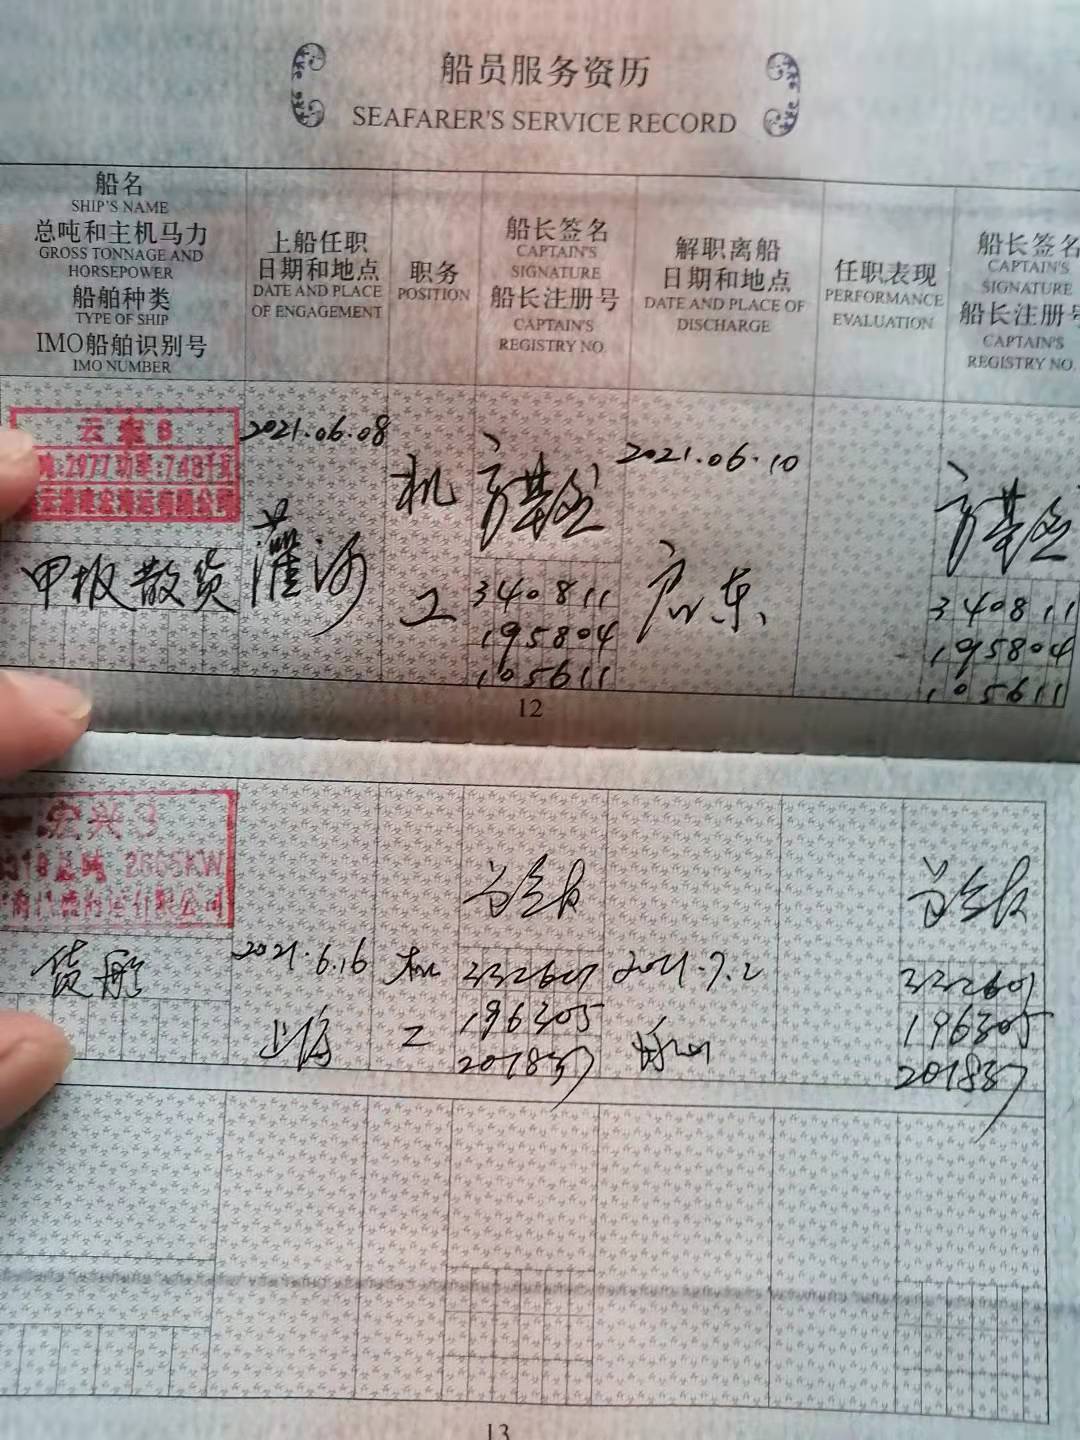 船员服务资历
SEAFARER'S SERVICE RECORD
船名
SHIP'S NAME
总吨和主机马力
GROSS TONNAGE AND
HORSEPOWER
船舶种类
TYPE OF SHIP
IMO船舶识别号
IMO NUMBER
上船任职
日期和地点
DATE AND PLACE
OF ENGAGEMENT
职务
POSITION
船长签名
CAPTAIN'S
SIGNATURE
船长注册号
CAPTAIN'S
REGISTRY NO.
解职离船
日期和地点
DATE AND PLACE OF
DISCHARGE
任职表现
PERFORMANCE
EVALUATION
船长签名
CAPTAIN'S
SIGNATURE
船长注册号
CAPTAIN'S
REGISTRY NO.
云 8
:2977功率:748千瓦
海运有限公司
甲板散货
2021.06.08
灌河
机
工
340811
195804
105611
2021.06.10
广东
340811
195804
105611
12
宏兴
总吨 2665KW
有限公司
货船
2021.6.16
上海
机
工
332601
196305
201837
2021.7.2
舟山
332601
196305
201837
13